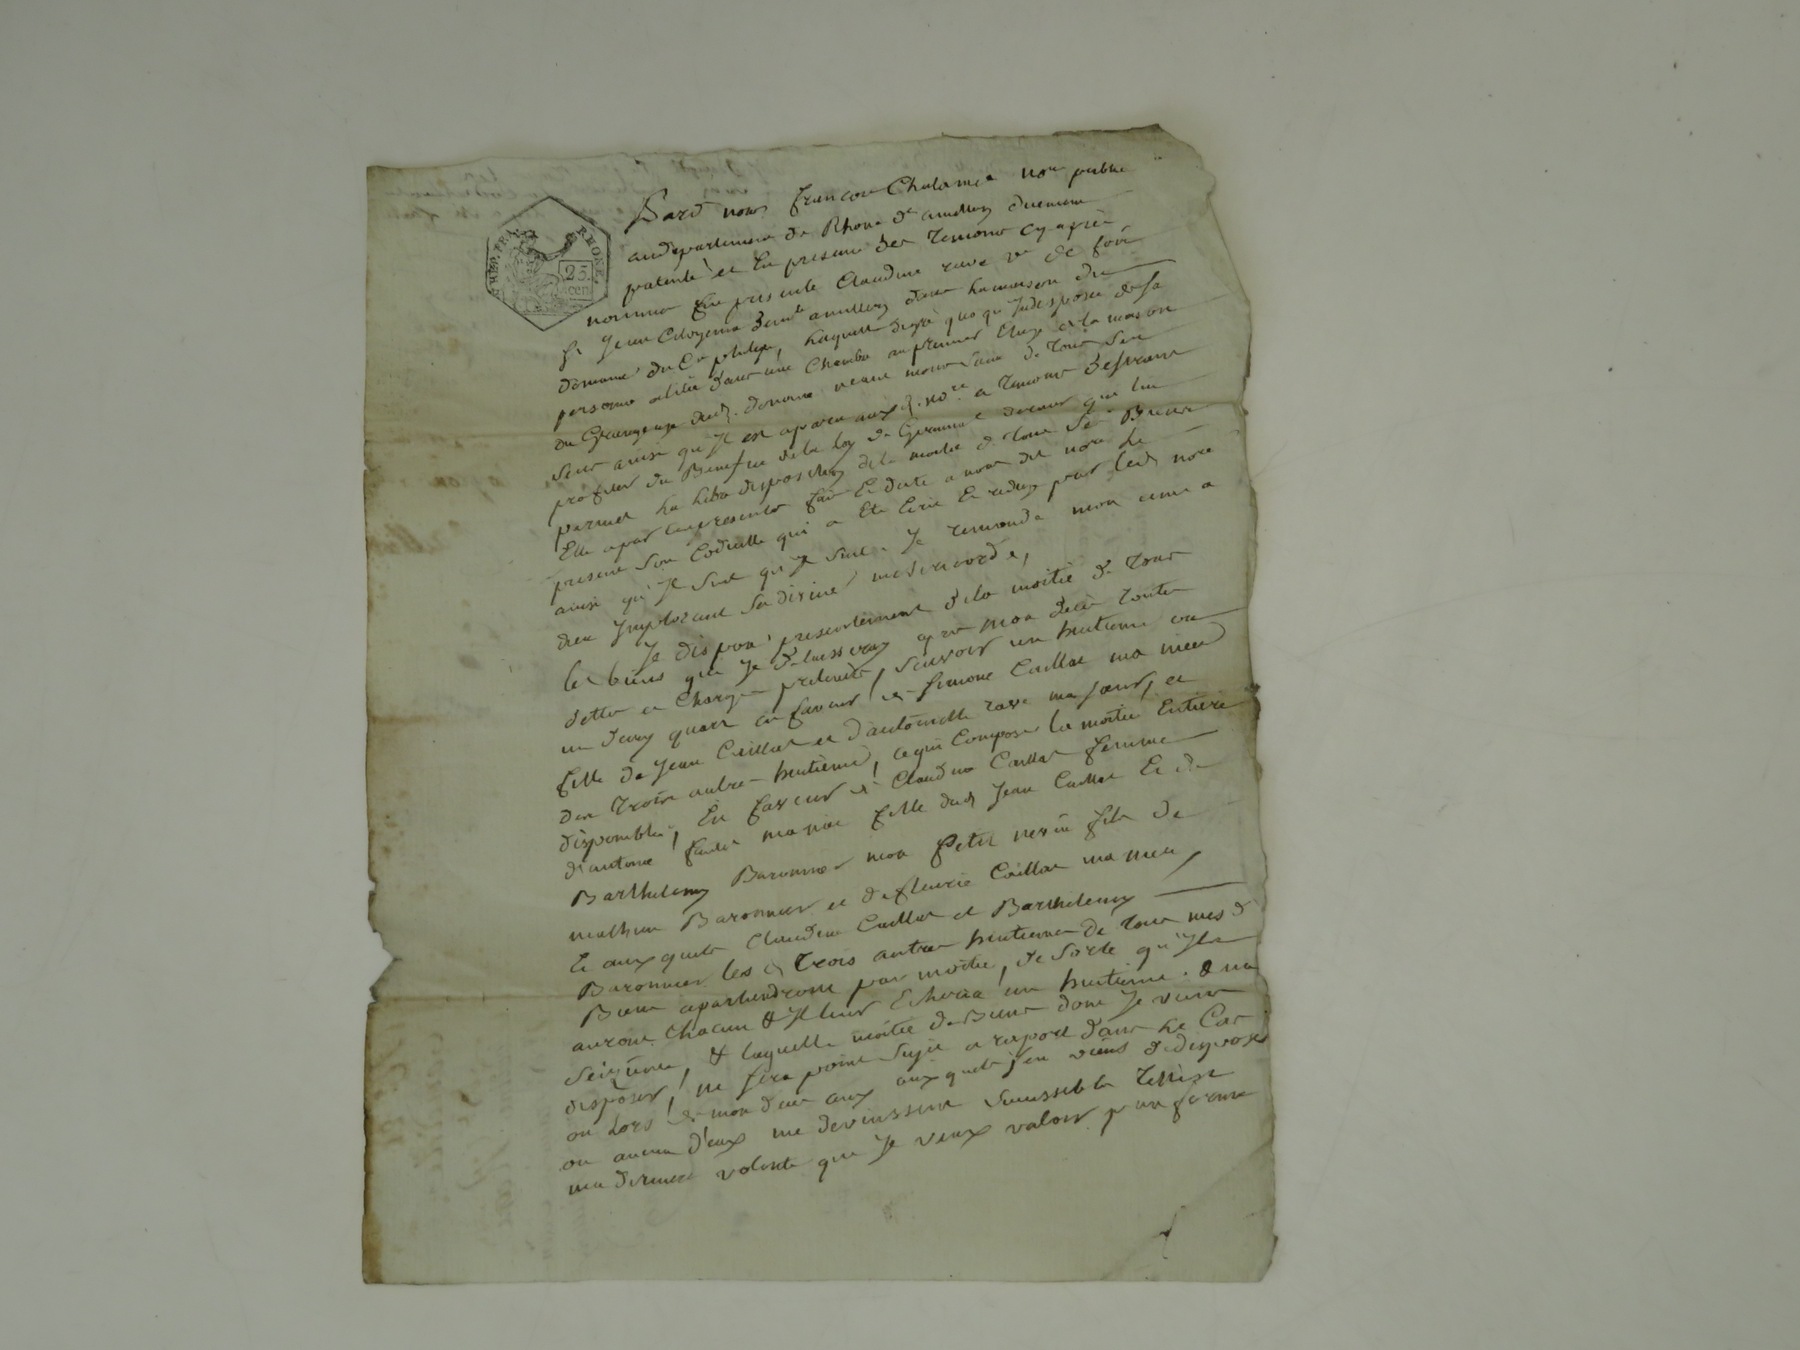 RÉP. FRA. RHONE.
25. cen.
Pard. nous françois Chalamel no.re public
au departement du Rhone de amilley duement
patenté et En presence des Temoins cy après
nommés fut presente Claudine rave v.e de feu
s.r Jean Citoyenne dem.te amilley dans la maison du
domaine du C.n philipe, laquelle digré quoi qu'Indisposée de sa
personne alitée dans une Chambre au premier Etage de la maison
du Grangeage dud. domaine neanmoins saine de Tous ses
sens ainsi qu'Il est aparu aux d. no.re et Temoins desirant
profiter du Benefice de la loy de Germinal dernier qui lui
permet la libre disposition de la moitié de Tous ses Biens
Elle a par les presentes fait et dicté a nous dit no.re le
present son Codicille qui a Eté Ecrit Et redigé par led. no.re
ainsi qu'Il suit qu'Il suit. Je recomande mon ame a
dieu Implorant sa divine misericorde,
Je dispose presentement de la moitié de Tous
les biens que Je délaisseray apres mon décès Toutes
dettes et Charges prélevées, sçavoir un huitieme ou
un demy quart en faveur de Simone Caillat ma niece
fille de Jean Caillat et d'antoinette rave ma sœur, et
des Trois autres huitiemes, ce qui Compose la moitié Entiere
disponible, En faveur de Claudine Caillat femme
d'antoine ma niece fille dud. Jean Caillat Et de
Barthelemy Baronnier mon petit neveu fils de
mathieu Baronnier et de fleurie Caillat ma niece,
Et aux quels Claudine Caillat et Barthelemy
Baronnier les d. Trois autres huitiemes de Tous mes d.
Biens apartiendront par moitié, de sorte qu'Ils
auront Chacun & Il leur Echerra un huitieme. & un
seizieme, & laquelle moitié de Biens dont Je viens
disposer, ne sera point sujette a raport dans le Cas
ou lors de mon deces aux aux quels j'en viens de disposer
ou aucun d'eux me devinssent successibles Telle est
ma derniere volonté que Je veux valoir par forme